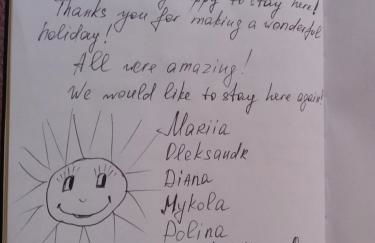 happy to stay here!
Thanks you for making a wonderful
holiday!
All were amazing!
We would like to stay here again!
Mariia
Oleksandr
Diana
Mykola
Polina